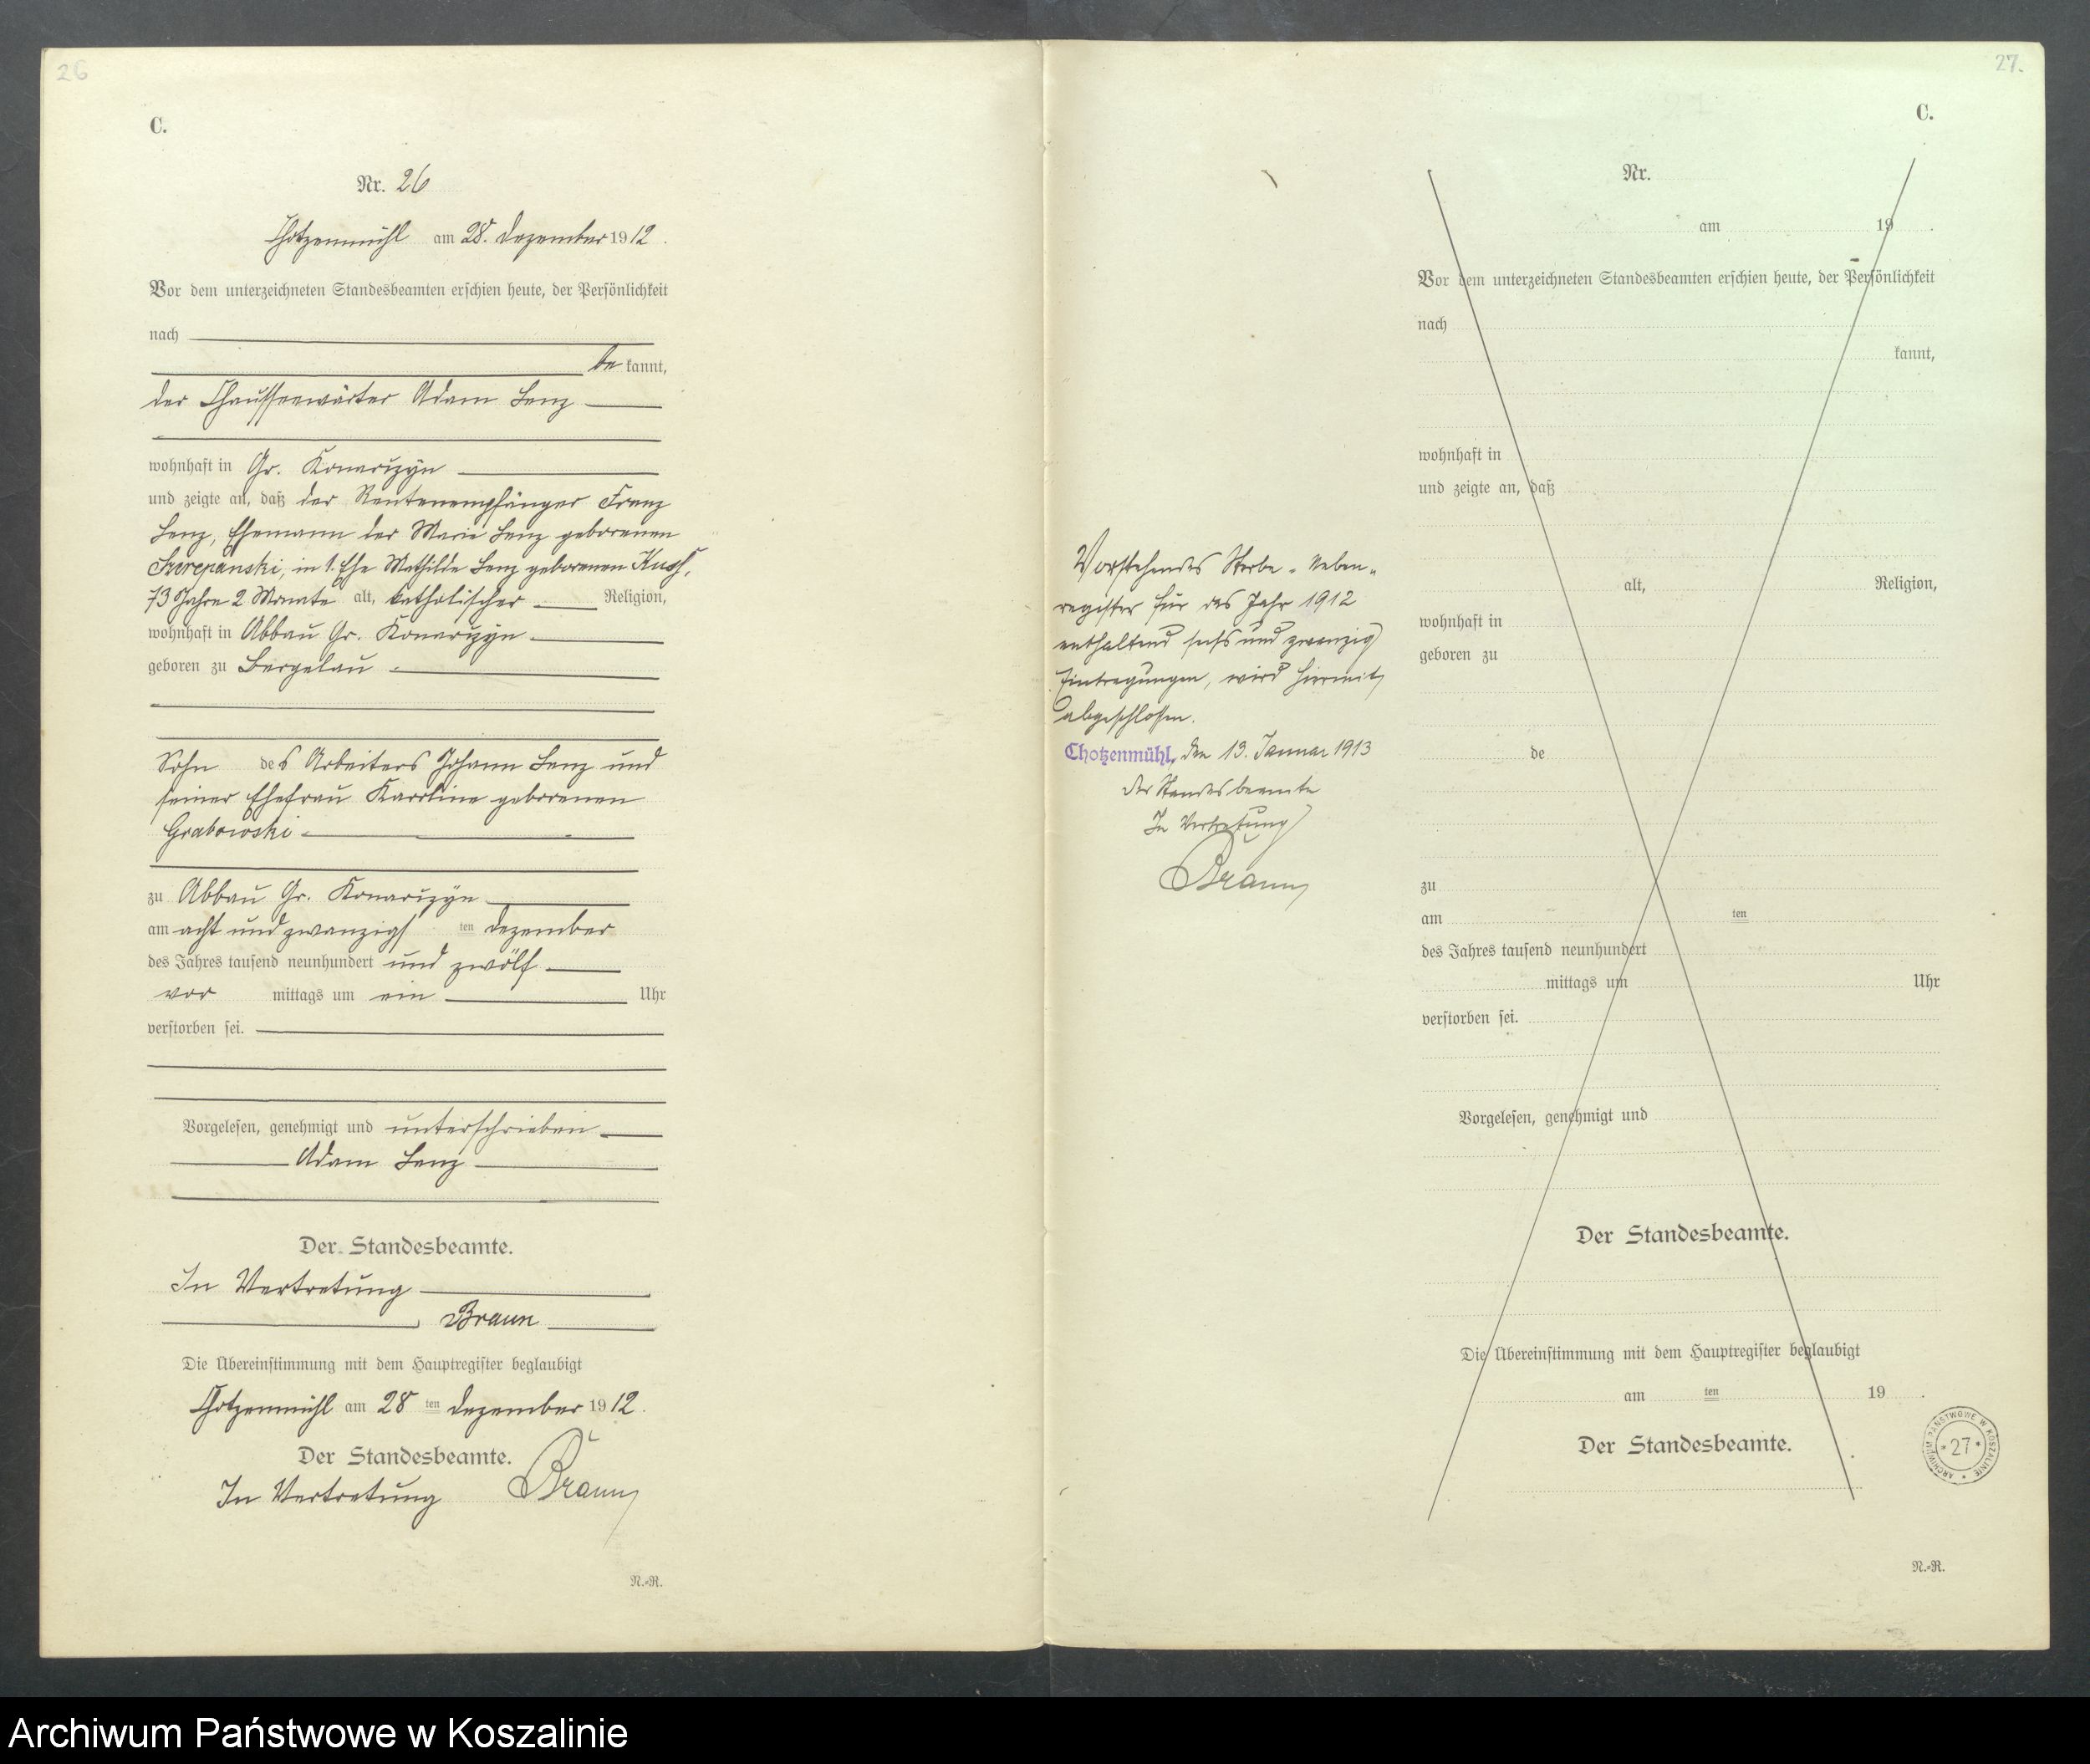 26
C.
Nr. 26
Chotzenmühl am 28. Dezember 1912.
Vor dem unterzeichneten Standesbeamten erschien heute, der Persönlichkeit
nach
be kannt,
der Chausseewärter Adam Lenz
wohnhaft in Gr. Konarczyn
und zeigte an, daß der Rentenempfänger Franz
Lenz, Ehemann der Marie Lenz geborenen
Szczepanski, in 1. Ehe Mathilde Lenz geborenen
73 Jahre 2 Monate alt, katholischer Religion,
wohnhaft in Abbau Gr. Konarczyn
geboren zu Bergelau
Sohn des Arbeiters Johann Lenz und
seiner Ehefrau Karoline geborenen
Grabowski
zu Abbau Gr. Konarczyn
am acht und zwanzigs ten Dezember
des Jahres tausend neunhundert und zwölf
vor mittags um ein Uhr
verstorben sei.
Vorgelesen, genehmigt und unterschrieben
Adam Lenz
Der Standesbeamte.
In Vertretung
Braun
Die Übereinstimmung mit dem Hauptregister beglaubigt
Chotzenmühl am 28 ten Dezember 1912.
Der Standesbeamte.
In Vertretung Braun
N.=R.
Vorstehendes Sterbe-Neben-
register für das Jahr 1912
enthaltend sechs und zwanzig
Eintragungen, wird hiermit
abgeschlossen.
Chotzenmühl, den 13. Januar 1913
Der Standesbeamte
In Vertretung
Braun
27.
C.
Nr.
am 19 .
Vor dem unterzeichneten Standesbeamten erschien heute, der Persönlichkeit
nach
kannt,
wohnhaft in
und zeigte an, daß
alt, Religion,
wohnhaft in
geboren zu
de
zu
am ten
des Jahres tausend neunhundert
mittags um Uhr
verstorben sei.
Vorgelesen, genehmigt und
Der Standesbeamte.
Die Übereinstimmung mit dem Hauptregister beglaubigt
am ten 19 .
Der Standesbeamte.
ARCHIWUM PAŃSTWOWE W KOSZALINIE
* 27 *
N.=R.
Archiwum Państwowe w Koszalinie